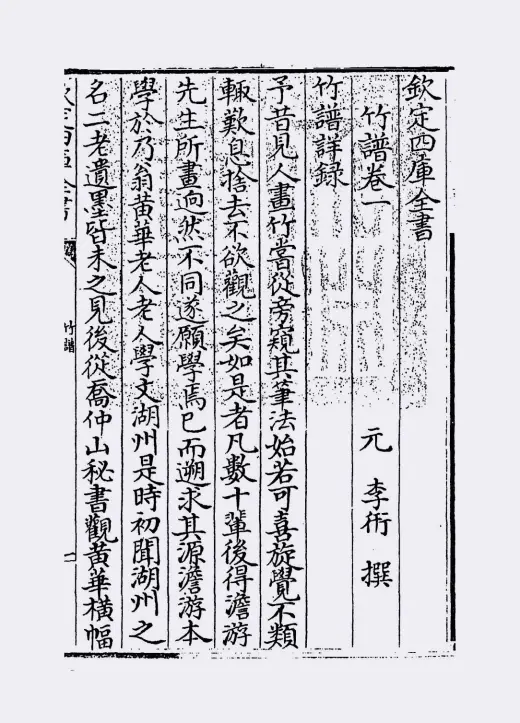 欽定四庫全書
竹譜卷一
元 李衎 撰
竹譜詳録
予昔見人畫竹嘗從旁窺其筆法始若可喜旋覺不類
輙歎息捨去不欲觀之矣如是者凡數十輩後得澹游
先生所畫逈然不同遂願學焉已而遡求其源澹游本
學於乃翁黃華老人老人學文湖州是時初聞湖州之
名二老遺墨皆未之見後從喬仲山秘書觀黃華横幅
竹譜
一